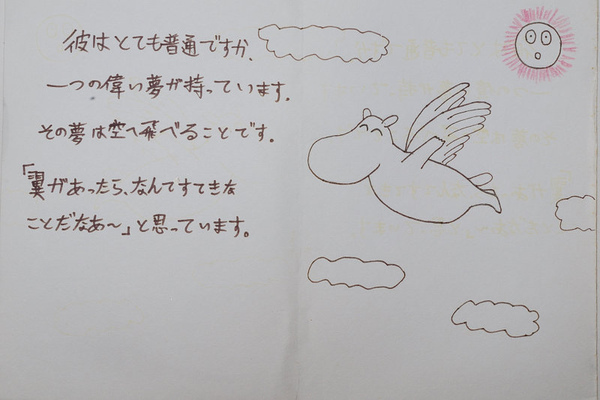 彼はとても普通ですが、
一つの偉い夢が持っています。
その夢は空へ飛べることです。
「翼があったら、なんてすてきな
ことだなあ〜」と思っています。